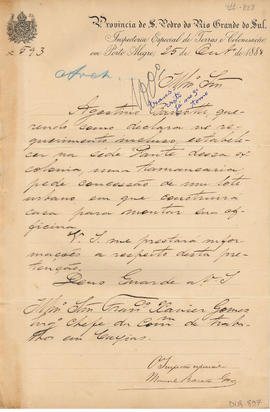 Provincia de S. Pedro do Rio Grande do Sul.
Inspectoria Especial de Terras e Colonisação
em Porto Alegre, 25 de Out.º de 1884
Nº 593
Illmº Snr
Agostinho
rendo como declara no re-
querimento incluso, estabele-
cer na Séde Dante dessa ex
colonia, uma
pede concessão de um lote
urbano em que construira
casa para montar sua of-
ficina.
V. S. me prestará infor-
mações a respeito desta pre-
tenção.
Deus Guarde a V. S.
Illmº Snr. Franº Xavier Gomes
Chefe da Comm. de Traba-
lhos em Caxias.
O Inspector especial
Manoel
DVR-897